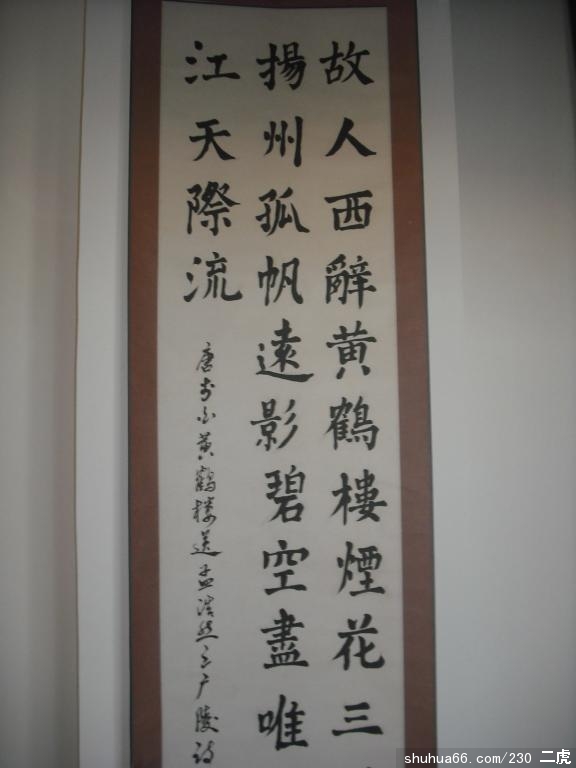 故人西辭黄鶴樓煙花三
揚州孤帆遠影碧空盡唯
江天際流
唐李白黄鹤楼送孟浩然之广陵诗
shuhua66.com/230 二虎